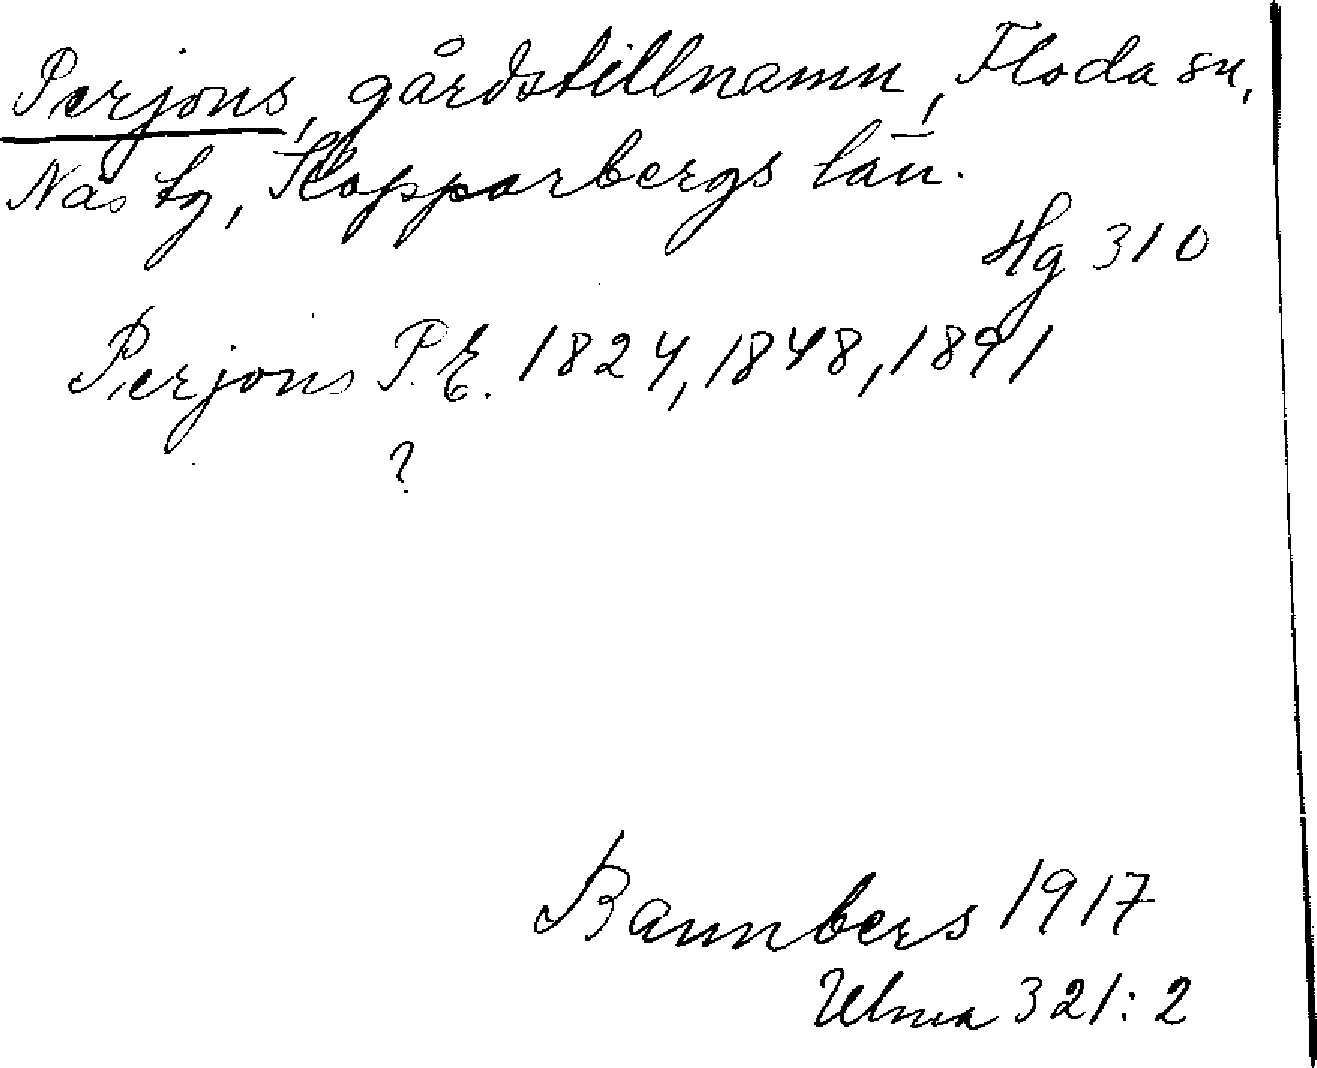 Perjons, gårdstillnamn, Floda sn,
Nås tg, Kopparbergs län.
Hg 310
Perjons P. E. 1824, 1848, 1891
?
Bannbers 1917
Ulma 321:2